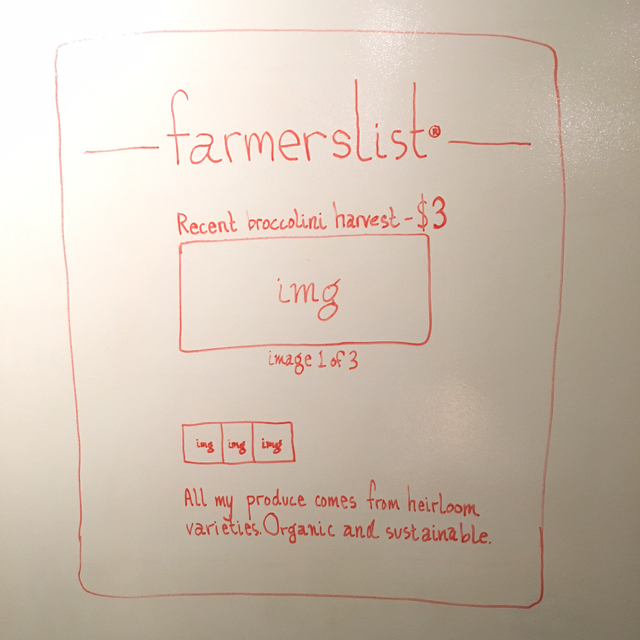 farmerslist®
Recent broccolini harvest - $3
img
image 1 of 3
img img img
All my produce comes from heirloom
varieties. Organic and sustainable.